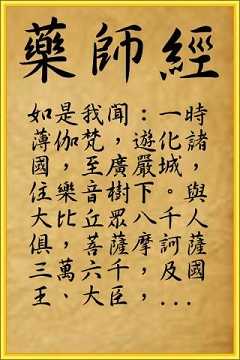 藥師經
如是我聞：一時
薄伽梵，遊化諸
國，至廣嚴城，
住樂音樹下。與
大比丘眾八千人
俱，菩薩摩訶薩
三萬六千，及國
王、大臣，...